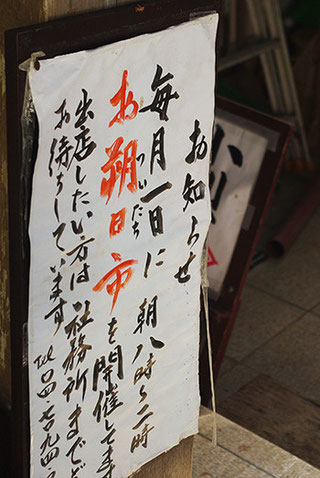 お知らせ
毎月一日に 朝八時〜二時
お朔日市を開催してま
ついたち
出店したい方は社務所までど
お待ちしています